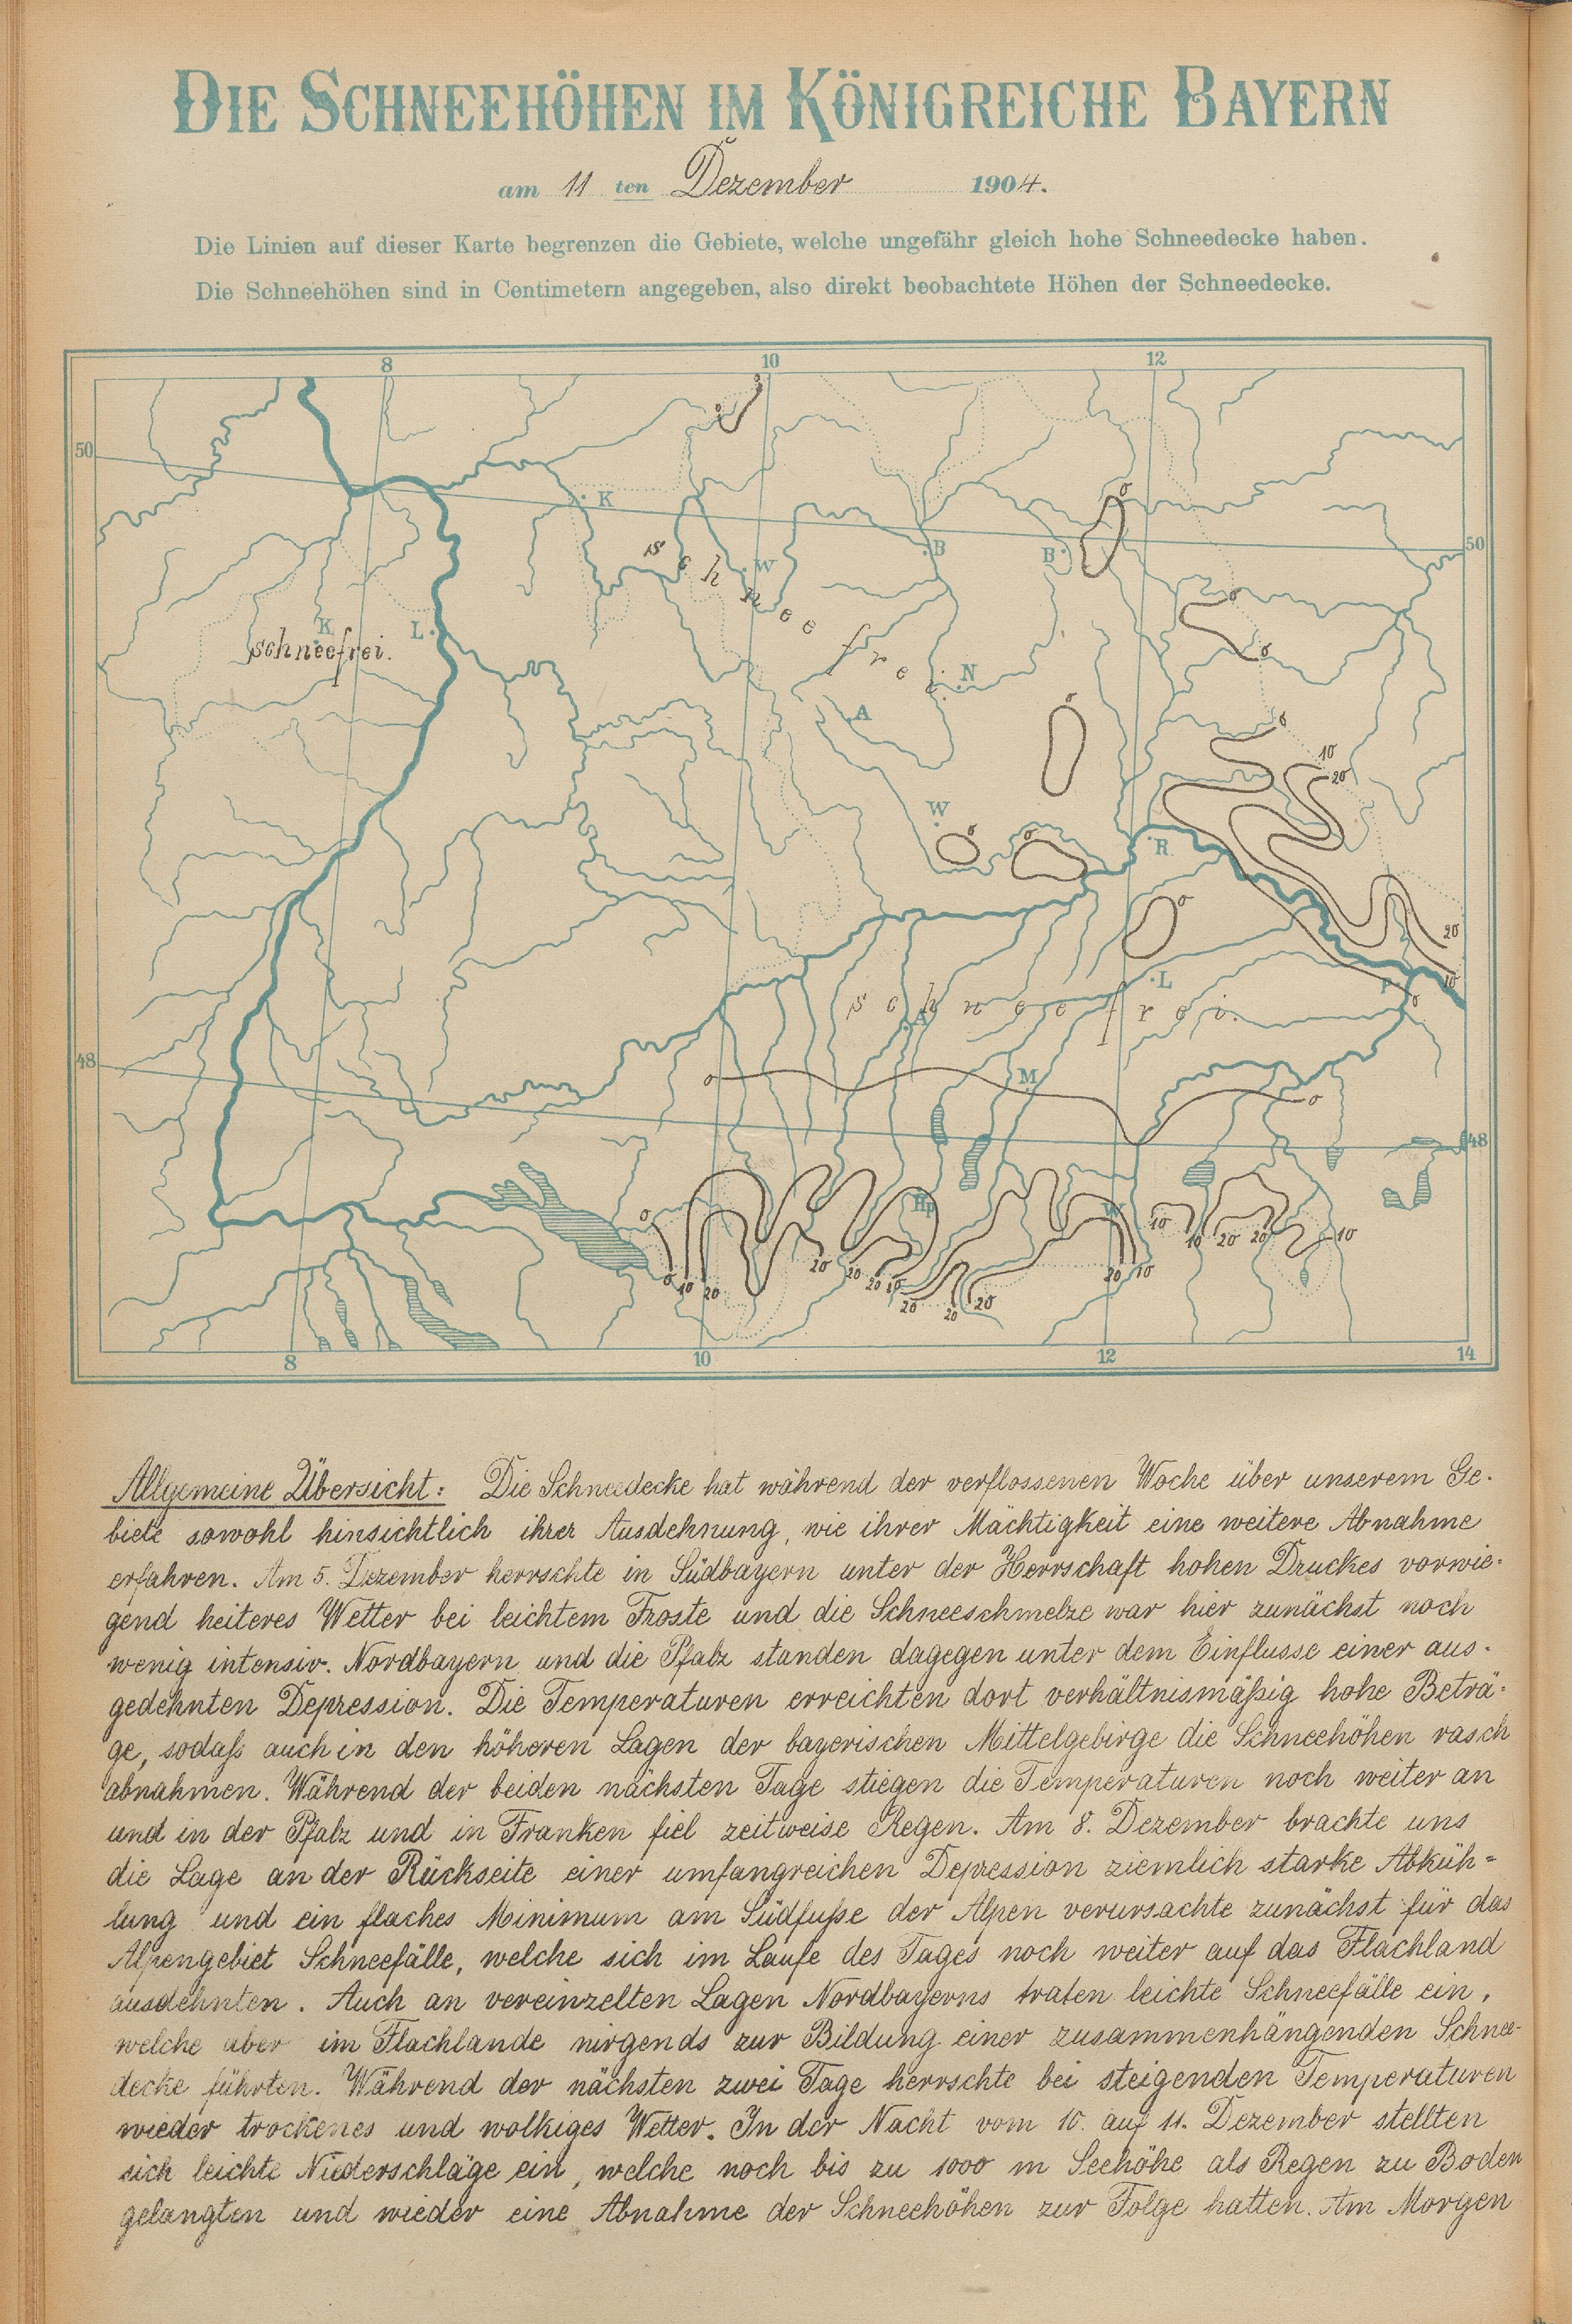 DIE SCHNEEHÖHEN IM KÖNIGREICHE BAYERN
am 11 ten Dezember 1904.
Die Linien auf dieser Karte begrenzen die Gebiete, welche ungefähr gleich hohe Schneedecke haben.
Die Schneehöhen sind in Centimetern angegeben, also direkt beobachtete Höhen der Schneedecke.
8 10 12
0
0
50
K
0
50
B
B
schneefrei
W
0
K
L
schneefrei.
0
N
0
A
0
10
20
W
0
0
R
0
20
10
L
P
0
schneefrei.
A
48
0
M
0
48
Hp
W
0
10
10
20
20
10
0
10
20
20
20
20
10
20
20
20
20
10
8 10 12 14
Allgemeine Übersicht: Die Schneedecke hat während der verflossenen Woche über unserem Ge-
biete sowohl hinsichtlich ihrer Ausdehnung, wie ihrer Mächtigkeit eine weitere Abnahme
erfahren. Am 5. Dezember herrschte in Südbayern unter der Herrschaft hohen Druckes vorwie-
gend heiteres Wetter bei leichtem Froste und die Schneeschmelze war hier zunächst noch
wenig intensiv. Nordbayern und die Pfalz standen dagegen unter dem Einflusse einer aus-
gedehnten Depression. Die Temperaturen erreichten dort verhältnismäßig hohe Beträ-
ge, sodaß auch in den höheren Lagen der bayerischen Mittelgebirge die Schneehöhen rasch
abnahmen. Während der beiden nächsten Tage stiegen die Temperaturen noch weiter an
und in der Pfalz und in Franken fiel zeitweise Regen. Am 8. Dezember brachte uns
die Lage an der Rückseite einer umfangreichen Depression ziemlich starke Abküh-
lung und ein flaches Minimum am Südfuße der Alpen verursachte zunächst für das
Alpengebiet Schneefälle, welche sich im Laufe des Tages noch weiter auf das Flachland
ausdehnten. Auch an vereinzelten Lagen Nordbayerns traten leichte Schneefälle ein,
welche aber im Flachlande nirgends zur Bildung einer zusammenhängenden Schnee-
decke führten. Während der nächsten zwei Tage herrschte bei steigenden Temperaturen
wieder trockenes und wolkiges Wetter. In der Nacht vom 10. auf 11. Dezember stellten
sich leichte Niederschläge ein, welche noch bis zu 1000 m Seehöhe als Regen zu Boden
gelangten und wieder eine Abnahme der Schneehöhen zur Folge hatten. Am Morgen